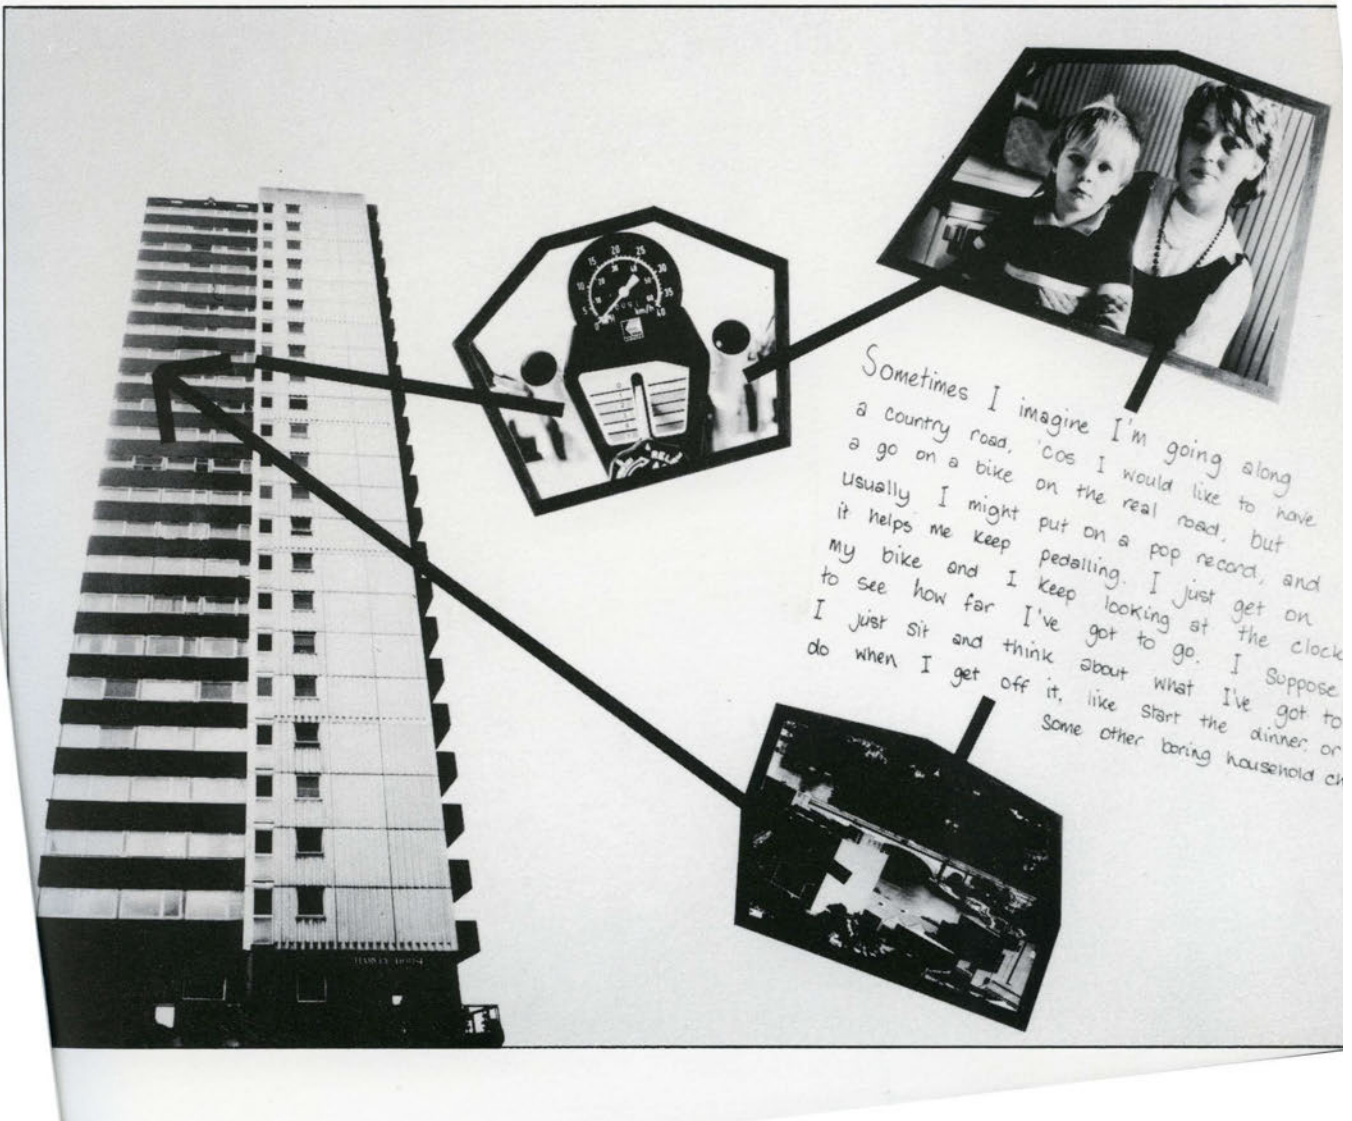 Sometimes I imagine I'm going along
a country road, 'cos I would like to have
a go on a bike on the real road, but
usually I might put on a pop record, and
it helps me keep pedalling. I just get on
my bike and I keep looking at the clock
to see how far I've got to go. I suppose
I just sit and think about what I've got to
do when I get off it, like start the dinner, or
some other boring household ch
5
10
15
20
25
30
35
40
km/h
RELAX
HARVEY HOUSE